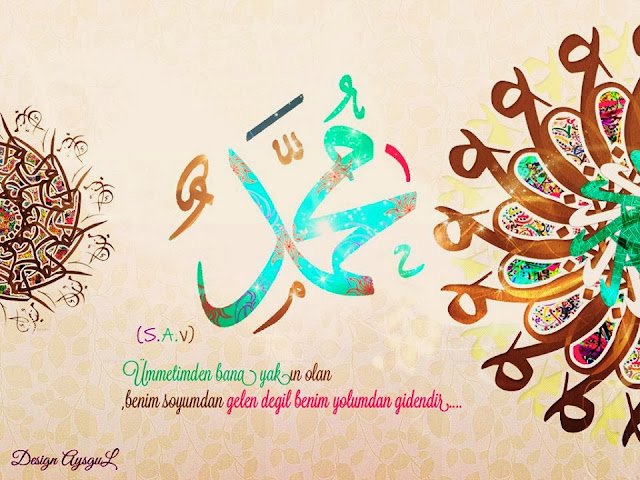 مُحَمَّد
(S.A.v)
Ümmetimden bana yakın olan
,benim soyumdan gelen degil benim yolumdan gidendir....
Design AysguL